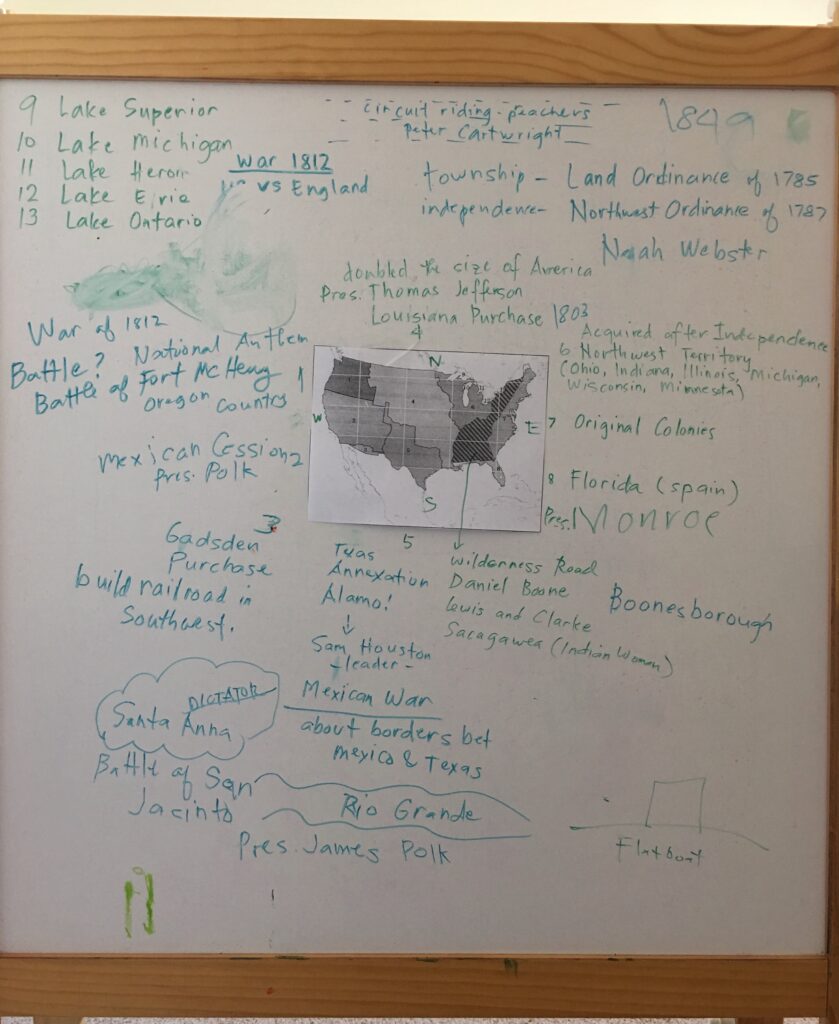 9 Lake Superior
10 Lake Michigan
11 Lake Heron
12 Lake Erie
13 Lake Ontario
War 1812
vs England
circuit riding preachers
Peter Cartwright
1849
township - Land Ordinance of 1785
independence - Northwest Ordinance of 1787
Noah Webster
doubled the size of America
Pres. Thomas Jefferson
Louisiana Purchase 1803
4
War of 1812
Battle? National Anthem
Battle of Fort McHenry
Oregon Country 1
Mexican Cession 2
Pres. Polk
Gadsden 3
Purchase
build railroad in
Southwest.
N
W
E
S
Acquired after Independence
6 Northwest Territory
(Ohio, Indiana, Illinois, Michigan,
Wisconsin, Minnesota)
7 Original Colonies
8 Florida (Spain)
Pres. Monroe
5
Texas
Annexation
Alamo!
Sam Houston
-leader-
Wilderness Road
Daniel Boone
Lewis and Clarke
Sacagawea (Indian Woman)
Boonesborough
DICTATOR
Santa Anna
Battle of San
Jacinto
Mexican War
about borders bet
Mexico & Texas
Rio Grande
Pres. James Polk
Flatboat